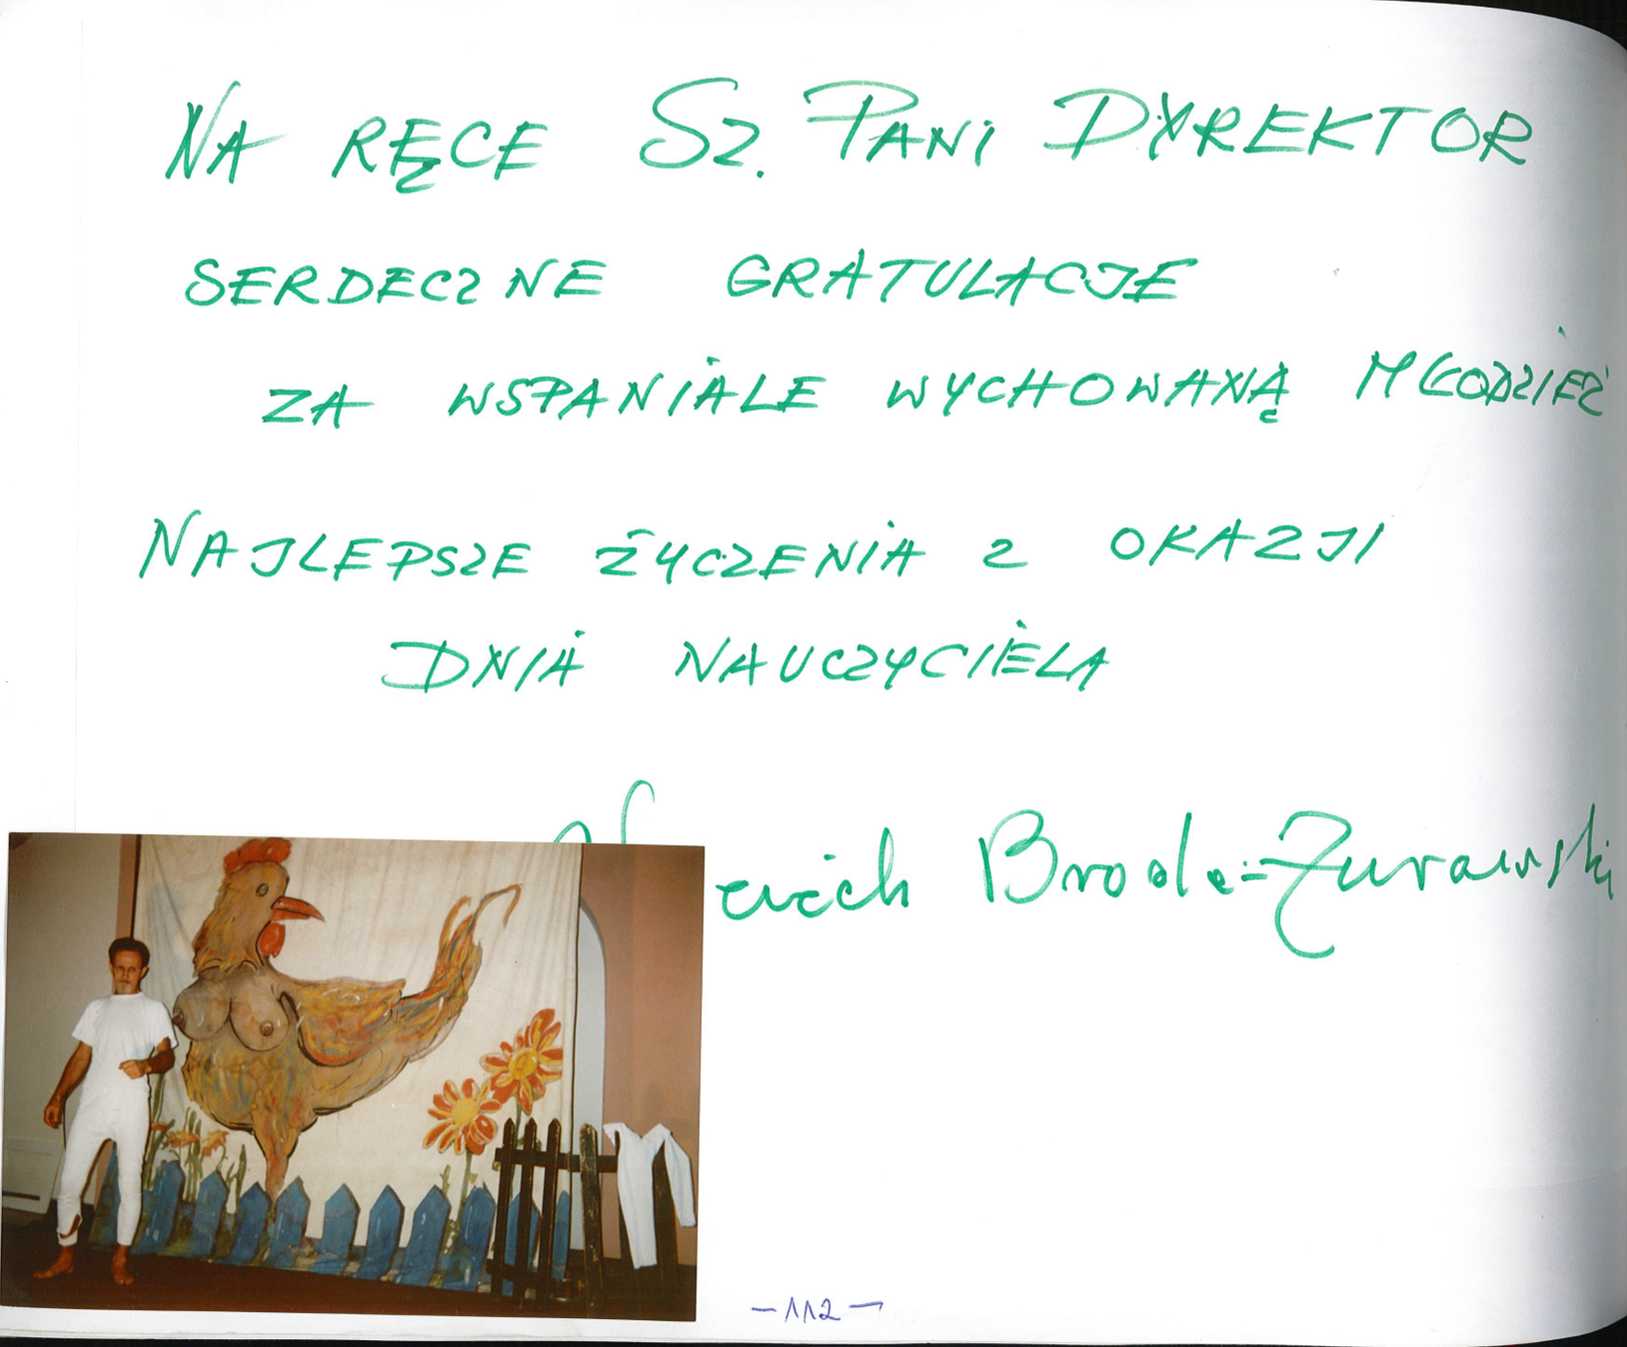 NA RĘCE SZ. PANI DYREKTOR
SERDECZNE GRATULACJE
ZA WSPANIALE WYCHOWANĄ MŁODZIEŻ
NAJLEPSZE ŻYCZENIA Z OKAZJI
DNIA NAUCZYCIELA
-112-